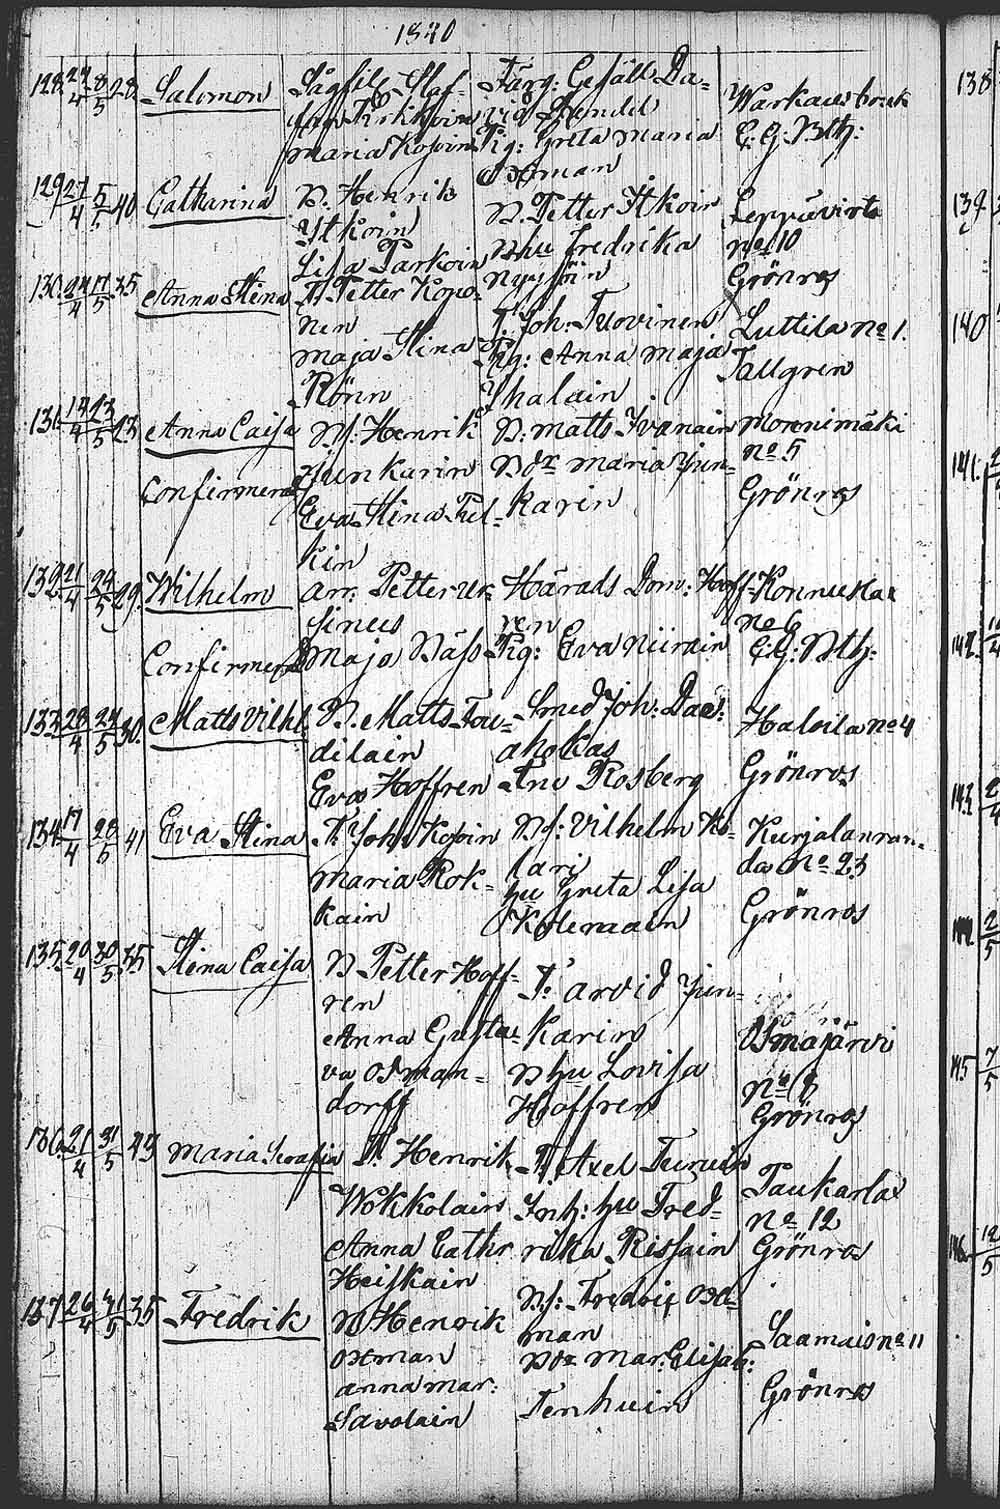 1840
128. 27/4 8/5 28. Salomon
Sågfile Staf-
fan Kikkoin
Maria Kopoin
Färg: Gesäll Da-
vid
Pig: Greta Maria
Östman
Warkaus bruk
G: G: Bth:
129 27/4 5/5 40 Catharina
B. Henrik
Itkoin
Lisa Parkoin
B. Petter Itkoin
Bhu Fredrika
Nyyssöin
Leppävirta
no 10
Grönros
130. 24/4 17/5 35 Anna Stina
T. Petter Kopo-
nen
Maja Stina
Rönn
T. Joh: Tuovinen
Pig: Anna Maja
Ihalain
Luttila no 1.
Tallgren
131. 13/4 23/5 23 Anna Caisa
Confirmerad
Bs. Henrik
Junkarin
Eva Stina Pul-
kin
B: Matts Ivanain
Bdr Maria Jun-
karin
Moninmäki
no 5
Grönros
132 21/4 24/5 29. Wilhelm
Confirmerad
Arr: Petter Ur-
sinus
Maja Bäss
Härads Dom: Hoff-
ren
Pig: Eva Niirain
Konnuslax
no 6
G: G: Bth:
133 28/4 24/5 30. Matts Vilh:
B. Matts Tau-
dilain
Eva Hoffren
Smed Joh: Dav:
Ahokas
Enk Rosberg
Halvila no 4
Grönros
134 17/4 28/5 41 Eva Stina
T. Joh. Kopoin
Maria Rok-
kain
Bs: Vilhelm Ko-
lari
hu Greta Lisa
Kolemain
Kurjalanran-
da No 23
Grönros
135. 20/4 30/5 35 Stina Caisa
B Petter Hoff-
ren
Anna Gusta-
va Osman-
dorff
T. Arvid Jun-
karin
B hu Lovisa
Hoffren
Osmajärvi
no 3
Grönros
136. 21/4 31/5 43 Maria Serafia
T. Henrik
Wokkolain
Anna Cathr
Heiskain
T. Axel Turuin
Inh: hu Fred-
rika Rissain
Paukarlax
no 12
Grönros
137 26/4 31/5 35 Fredrik
B Henrik
Östman
Anna Mar:
Savolain
Bs: Fredric Öst-
man
Bdr Mar: Elisab:
Tenhuin
Saamais no 11
Grönros
138
139
140
141.
142.
143.
144.
145
146.